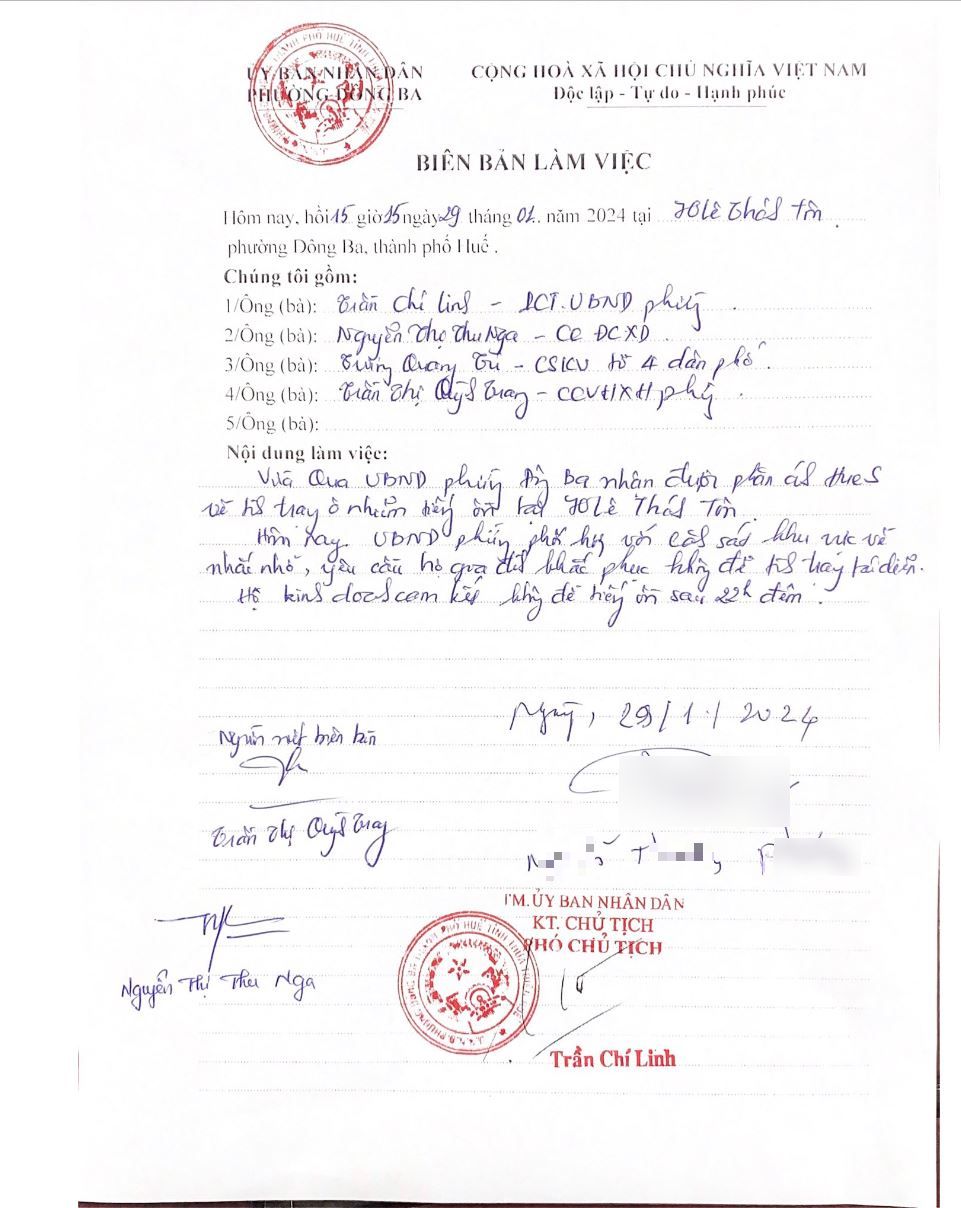 ỦY BAN NHÂN DÂN
PHƯỜNG ĐÔNG BA
CỘNG HOÀ XÃ HỘI CHỦ NGHĨA VIỆT NAM
Độc lập - Tự do - Hạnh phúc
BIÊN BẢN LÀM VIỆC
Hôm nay, hồi 15 giờ 15 ngày 29 tháng 01 năm 2024 tại Lê Thánh Tôn
phường Đông Ba, thành phố Huế.
Chúng tôi gồm:
1/Ông (bà): Trần Chí Linh - PCT.UBND phường
2/Ông (bà): Nguyễn Thị Thu Nga - CC ĐCXD
3/Ông (bà): Trương Quang - CSKV tổ 4 dân phố.
4/Ông (bà): Trần Thị Quỳnh Trang - CCVHXH phường
5/Ông (bà):
Nội dung làm việc:
Vừa Qua UBND phường Đông Ba nhận được phản ánh Hues
về tình trạng ô nhiễm tiếng ồn tại Lê Thánh Tôn
Hôm nay UBND phường phối hợp với cảnh sát khu vực về
nhắc nhở, yêu cầu hộ gia đình khắc phục không để tình trạng tái diễn.
Hộ kinh doanh cam kết không để tiếng ồn sau 22h đêm.
Ngày, 29/1/2024
Người viết biên bản
Trần Thị Quỳnh Trang
Nguyễn Thị Thu Nga
TM. ỦY BAN NHÂN DÂN
KT. CHỦ TỊCH
PHÓ CHỦ TỊCH
Trần Chí Linh